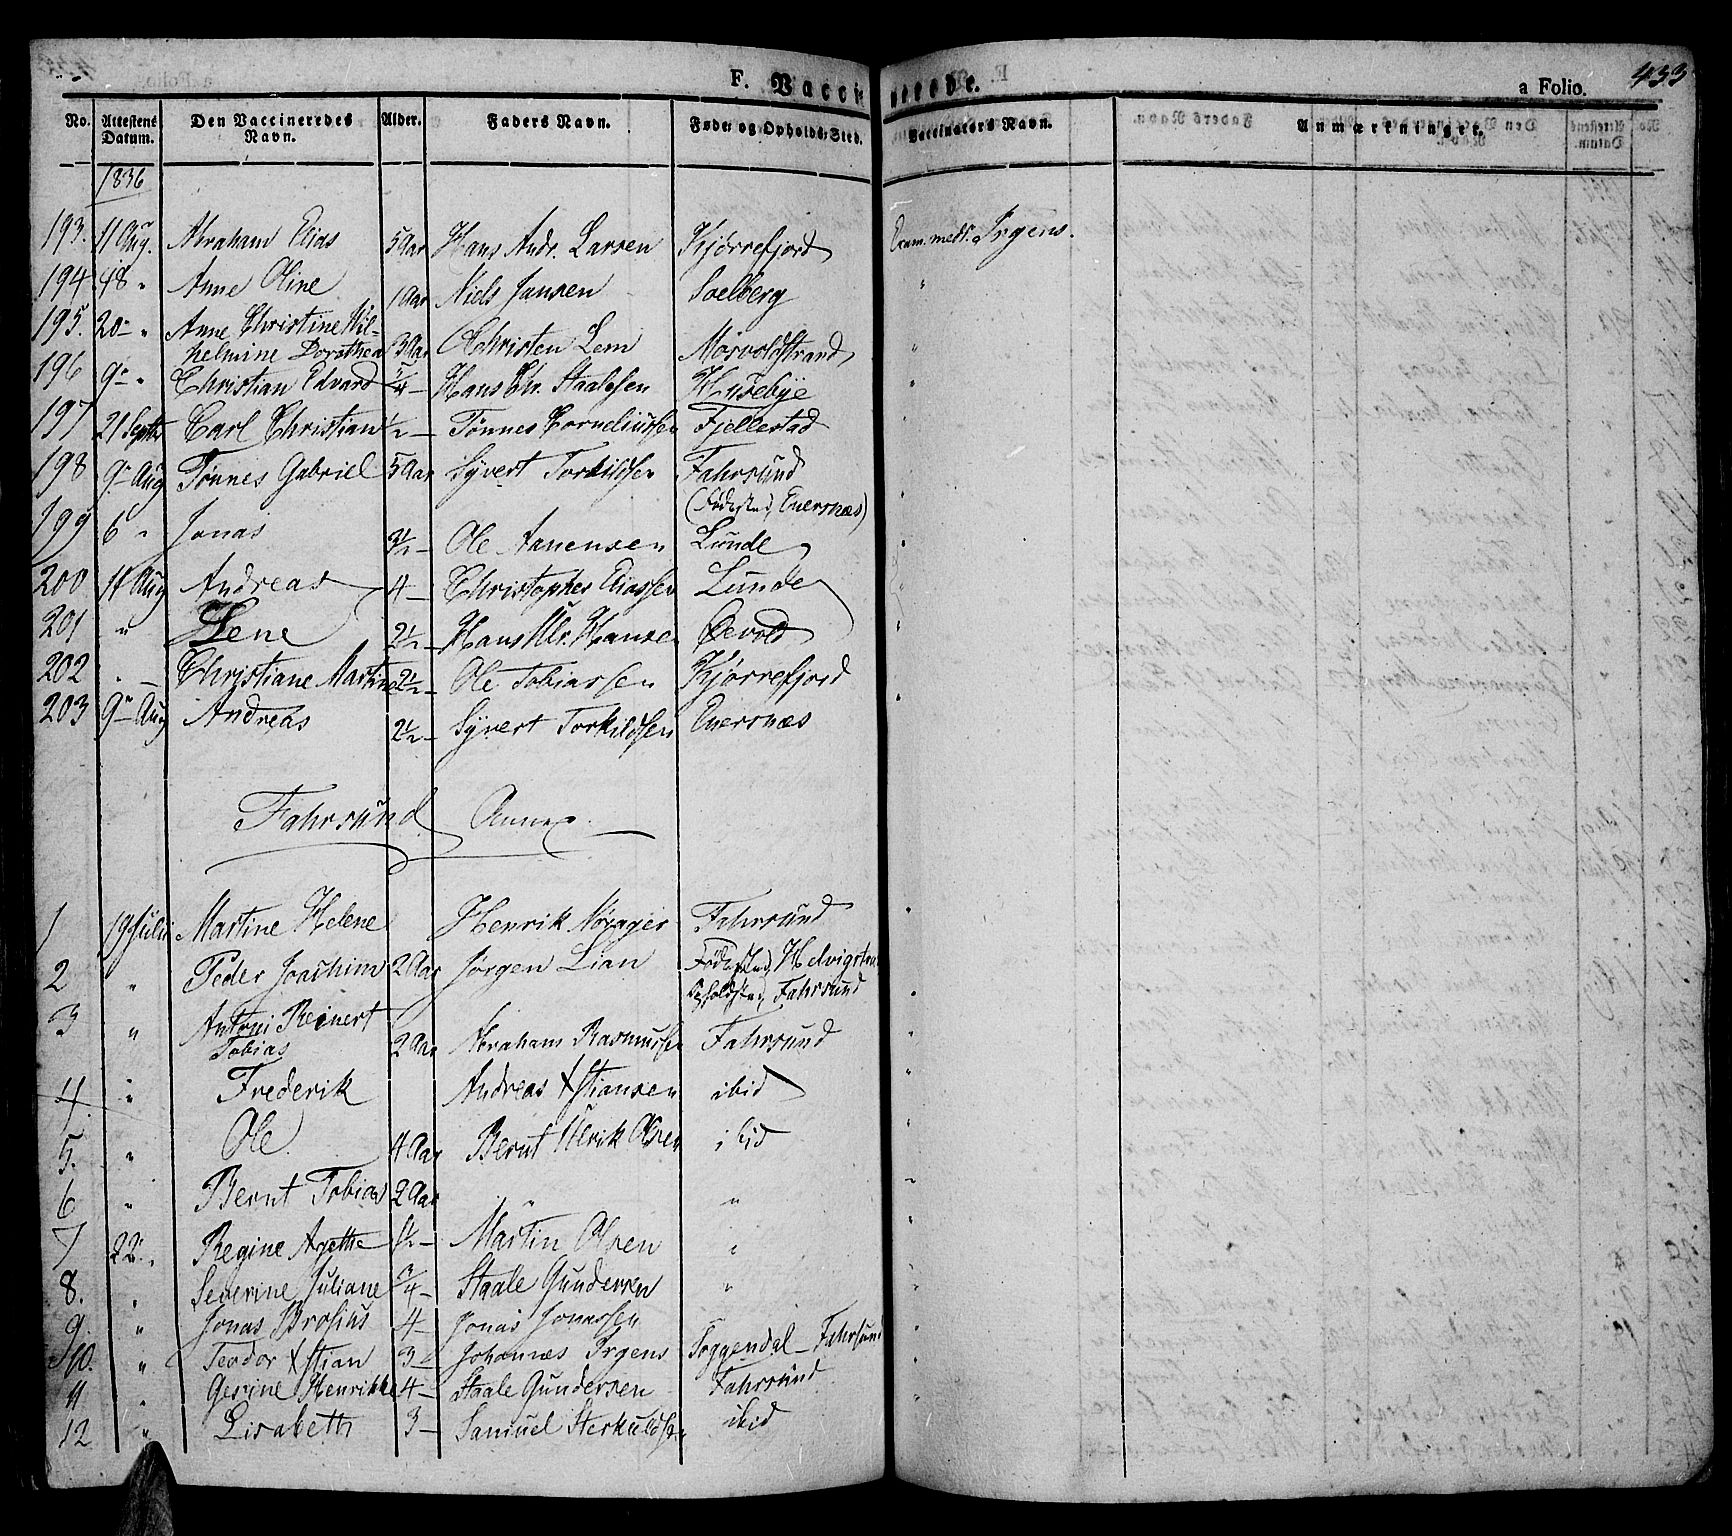 F. Vaccinerede.
a Folio. 433
No. Attestens Datum. Den Vaccineredes Navn. Alder. Faders Navn. Føde- og Opholds-Sted. Vaccinators Navn. Anmærkninger.
1836
193. 11 Aug. Abraham Elias 5 Aar Hans Andr. Larsen Kjørrefjord Exam. med. Irgens.
194 18 " Anne Oline 1 Aar Niels Jansen Soelberg "
195. 20 " Anne Christine Wil-
helmine Dorothea 3 Aar Christen Lem Mosvoldstrand "
196 9 " Christian Edvard 1/4 - Hans Chr. Staalesen Husebye "
197 21 Septbr Carl Christian 1/2 - Tønnes Corneliussen Fjellestad "
198 9 Aug Tønnes Gabriel 5 Aar Syvert Torkildsen Fahrsund
(Fødested, Enersnæs) "
199 6 " Jonas 3/2 - Ole Aanensen Lunde "
200 11 Aug Andreas 4 - Christopher Eliassen Lunde "
201 " Lene 2 1/2 - Hans Ulr. Hansen Øevold "
202 " Christiane Martine 2 1/2 - Ole Tobiassen Kjørrefjord
203 9 Aug Andreas 2 1/2 - Syvert Torkildsen Enersnæs "
Fahrsund Annex.
1 19 Julii Martine Helene Henrik Nørager Fahrsund "
2 " Peder Joachim 2 Aar Jørgen Lian Fødested,
Opholdsted, Fahrsund "
3 " Antoni Reinert
Tobias 2 Aar Abraham Rasmussen Fahrsund "
4. " Frederik Andreas Xstiansen ibid "
5. " Ole 4 Aar Bernt Ulrik Olsen ibid "
6 " Bernt Tobias 2 Aar " " "
7 22 " Regine Agethe 1/2 - Martin Olsen " "
8. " Severine Juliane 3/4 - Staale Gundersen " "
9. " Jonas Brosius 4 - Jonas Jonassen "
10. " Teodor Xstian 3 - Johannes Irgens Toggendal - Fahrsund "
11 " Gesine Henrikke 4 - Staale Gundersen Fahrsund "
12 " Lisabeth 3 - Samuel ibid "